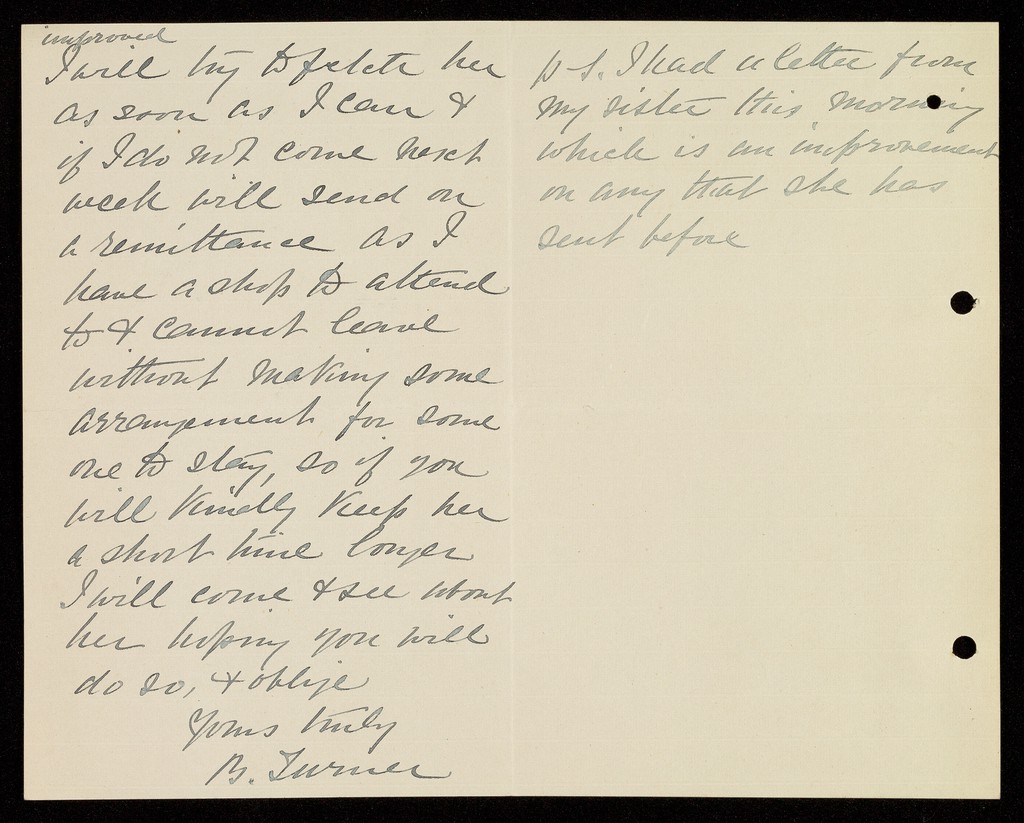 improved
I will try to fetch her
as soon as I can &
if I do not come next
week will send on
a remittance as I
have a shop to attend
to & cannot leave
without making some
arrangement for some
one to stay, so if you
will kindly keep her
a short time longer
I will come & see about
her hoping you will
do so, & oblige
Yours truly
B. Turner
p-s. I had a letter from
my sister this morning
which is an improvement
on any that she has
sent before